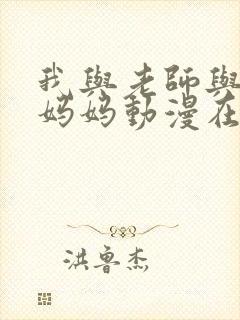 我與老師與
媽媽動漫在
洪魯杰